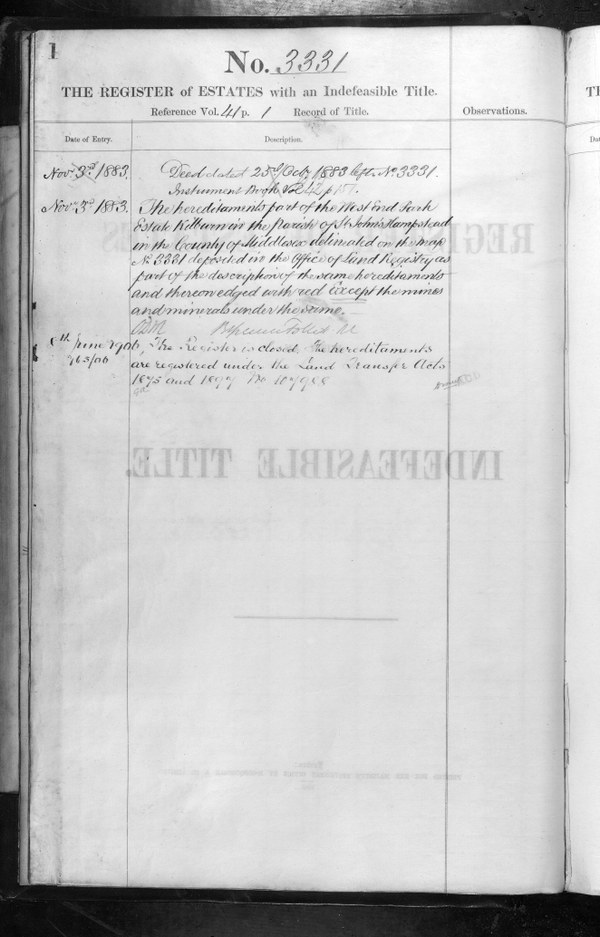 1
No. 3331
THE REGISTER of ESTATES with an Indefeasible Title.
Reference Vol. 41 p. 1 Record of Title.
Observations.
Date of Entry.
Description.
Nov. 3rd 1883.
Deed dated 25th Octr 1883 Cept. No 3331.
Instrument Book Vol 42 p 157.
Nov. 3rd 1883.
The hereditaments part of the West End Park
Estate Kilburn in the Parish of St Johns Hampstead
in the County of Middlesex delineated on the map
No 3331 deposited in the Office of Land Registry as
part of the description of the same hereditaments
and thereon edged with red Except the mines
and minerals under the same.
June 1906
The Register is closed. The hereditaments
are registered under the Land Transfer Acts
1875 and 1897 No 107988
INDEFEASIBLE TITLE.